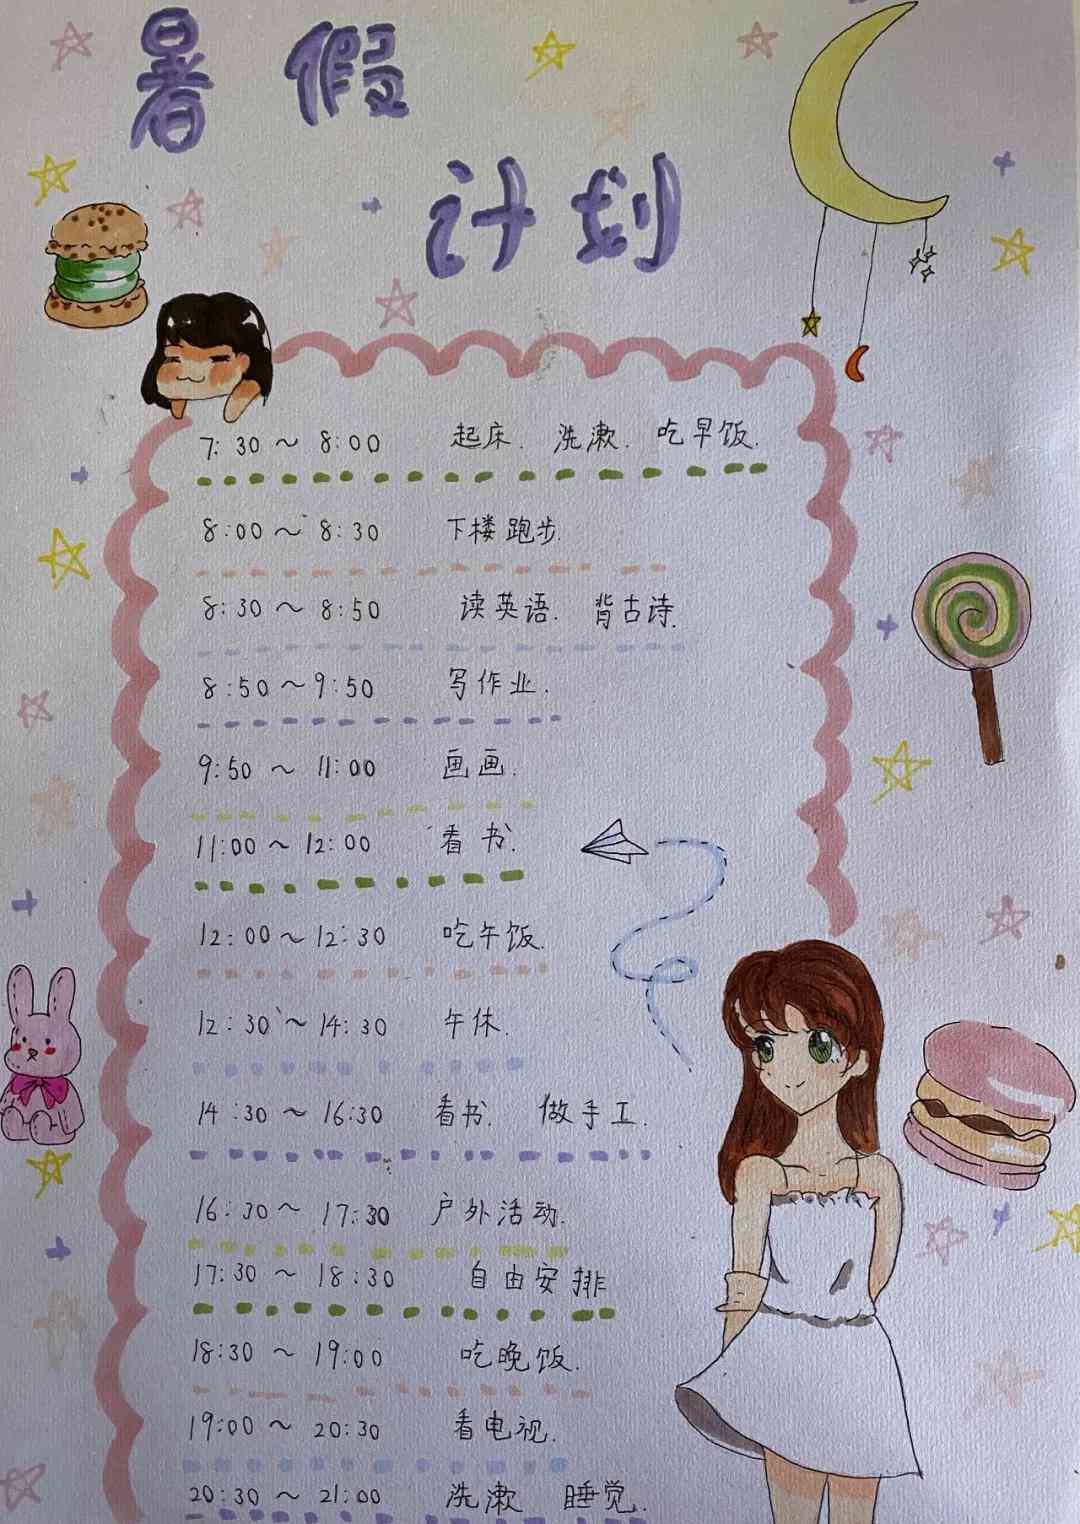 暑假
计划
7:30～8:00 起床. 洗漱. 吃早饭.
8:00～8:30 下楼跑步.
8:30～8:50 读英语. 背古诗.
8:50～9:50 写作业.
9:50～11:00 画画.
11:00～12:00 看书.
12:00～12:30 吃午饭.
12:30～14:30 午休.
14:30～16:30 看书. 做手工.
16:30～17:30 户外活动.
17:30～18:30 自由安排
18:30～19:00 吃晚饭.
19:00～20:30 看电视.
20:30～21:00 洗漱 睡觉.